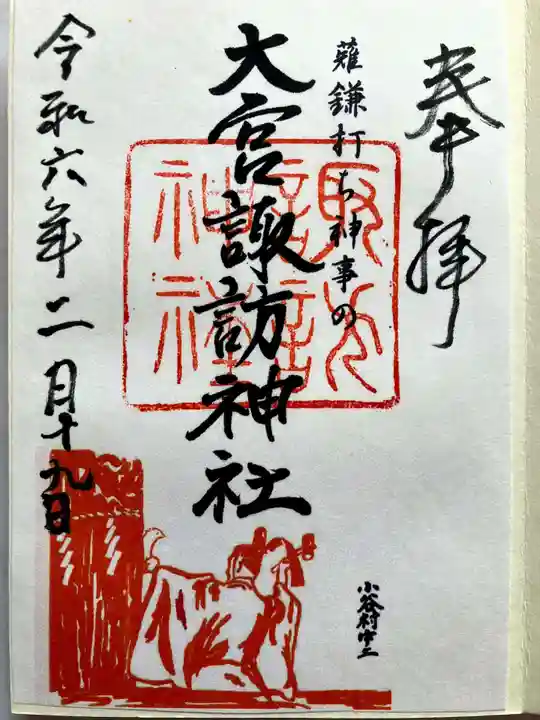 奉拝
薙鎌打ち神事の
大宮諏訪神社
諏訪
神社
令和六年二月十九日
小谷村中土